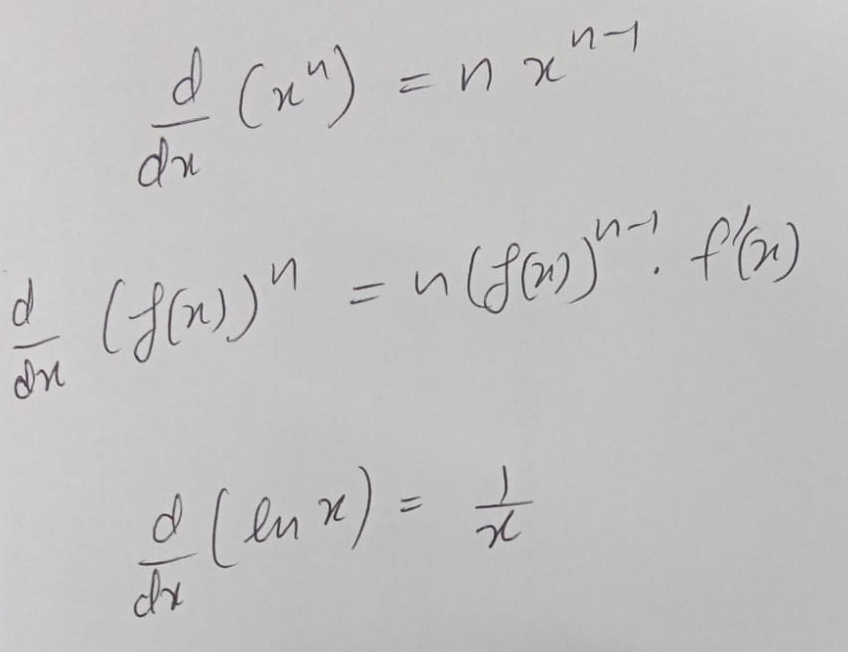 d/dx (xⁿ) = n xⁿ⁻¹
d/dx (f(x))ⁿ = n (f(x))ⁿ⁻¹ . f'(x)
d/dx (ln x) = 1/x